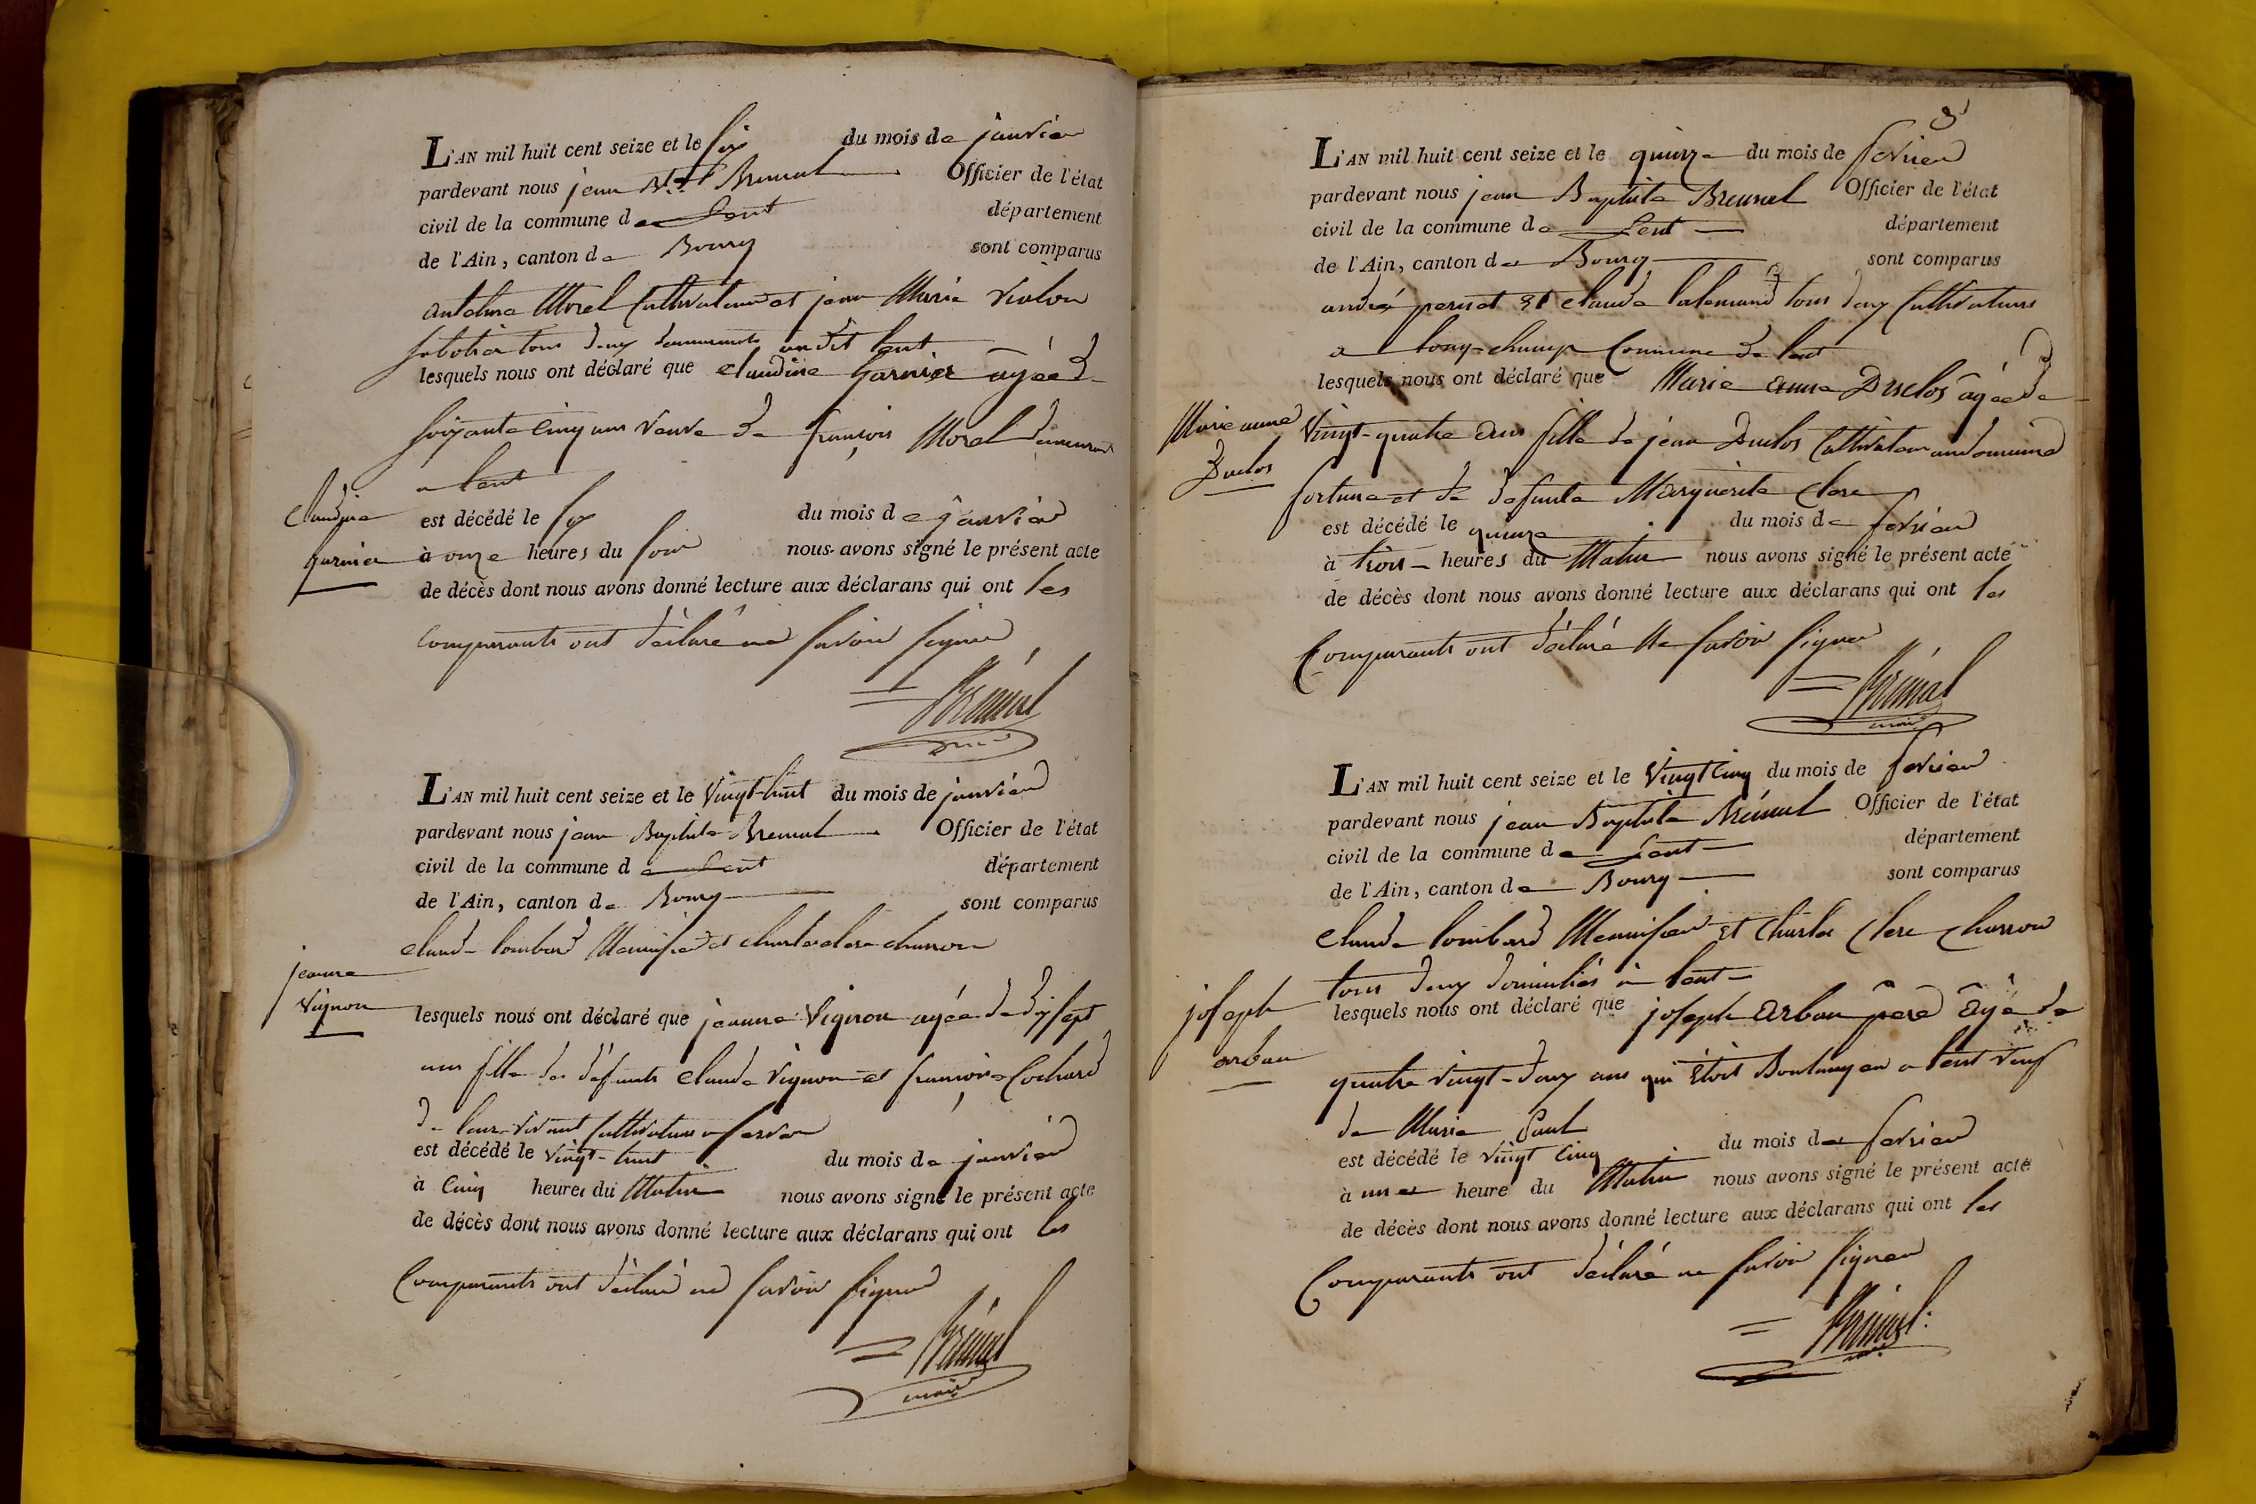 L'AN mil huit cent seize et le six du mois de janvier
pardevant nous jean Bte Bremal Officier de l'état
civil de la commune de Lent département
de l'Ain, canton de Bourg sont comparus
antelme Morel Cultivateur et jean Marie violon
sabotier tous deux demeurants audit lent
lesquels nous ont déclaré que Claudine Garnier agée de
soixante Cinq ans veuve de françois Morel demeurant
a lent
Claudine
Garnier
est décédé le six du mois de janvier
à onze heures du soir nous avons signé le présent acte
de décès dont nous avons donné lecture aux déclarans qui ont les
Comparants ont déclaré ne savoir signer
Brémal
maire
L'AN mil huit cent seize et le Vingt-huit du mois de janvier
pardevant nous jean Baptiste Bremal Officier de l'état
civil de la commune de Lent département
de l'Ain, canton de Bourg sont comparus
Claude lombard Menuisier et charles clere charron
jeanne
Vignon
lesquels nous ont déclaré que jeanne Vignon agée de dix sept
ans fille des défunts Claude Vignon et françoise Cochard
de leur vivant Cultivateurs a servas
est décédé le vingt-huit du mois de janvier
à Cinq heures du Matin nous avons signé le présent acte
de décès dont nous avons donné lecture aux déclarans qui ont les
Comparants ont déclaré ne savoir signer
Brémal
maire
3
L'AN mil huit cent seize et le quinze du mois de fevrier
pardevant nous jean Baptiste Bremal Officier de l'état
civil de la commune de Lent département
de l'Ain, canton de Bourg sont comparus
andré pernet et claude lalemand tous deux Cultivateurs
a long-champ Commune de lent
lesquels nous ont déclaré que Marie anne Duclos âgée de
Marie anne
Duclos
Vingt-quatre ans fille de jean Duclos Cultivateur au domaine
fortune et de defunte Marguerite Clere
est décédé le quinze du mois de fevrier
à trois heures du Matin nous avons signé le présent acte
de décès dont nous avons donné lecture aux déclarans qui ont les
Comparants ont déclaré Ne savoir signer
Brémal
maire
L'AN mil huit cent seize et le Vingt Cinq du mois de fevrier
pardevant nous jean Baptiste Brémal Officier de l'état
civil de la commune de Lent département
de l'Ain, canton de Bourg sont comparus
Claude lombard Menuisier et Charles Clere Charron
tous deux domiciliés à lent
joseph
arban
lesquels nous ont déclaré que joseph Arban père âgé de
quatre vingt-deux ans qui étoit Boulanger a lent veuf
de Marie Paul
est décédé le Vingt Cinq du mois de fevrier
à une heure du Matin nous avons signé le présent acte
de décès dont nous avons donné lecture aux déclarans qui ont les
Comparants ont déclaré ne savoir signer
Brémal
maire